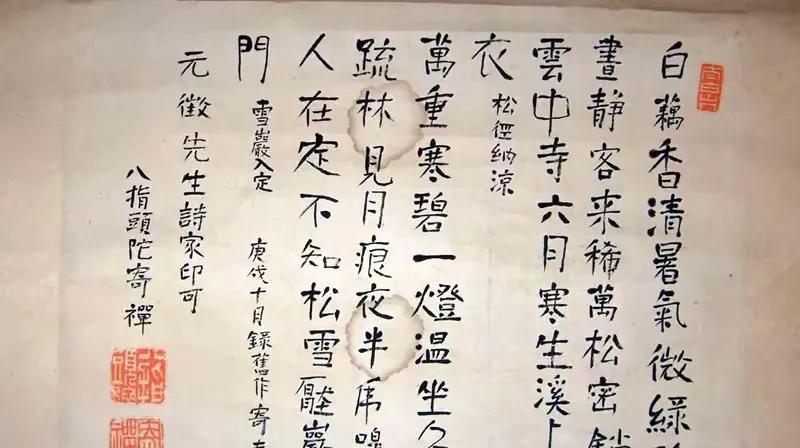 白藕香清暑氣微綠
晝靜客来稀萬松密鎖
雲中寺六月寒生溪上
衣
松徑納涼
萬重寒碧一燈温坐久
疏林見月痕夜半虎嗅
人在定不知松雪壓巖
門
雪巖入定
庚戌十月錄舊作寄
元徵先生詩家印可
八指頭陀寄禪